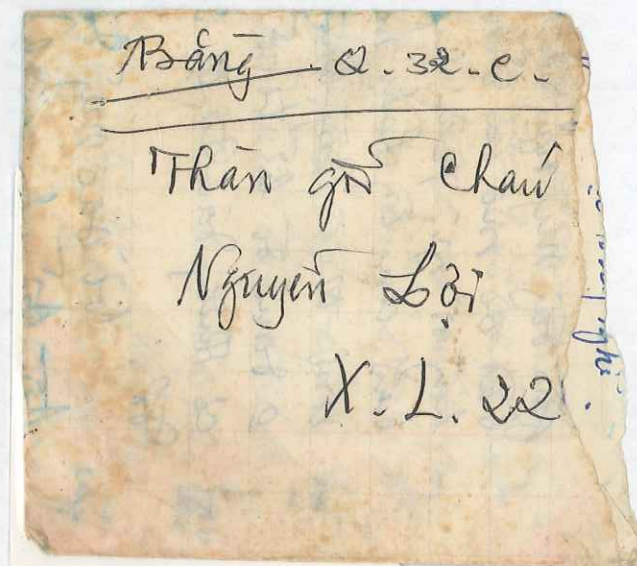 Bằng - Q. 32. C.
Thân gửi Cháu
Nguyễn Lợi
X. L. 22